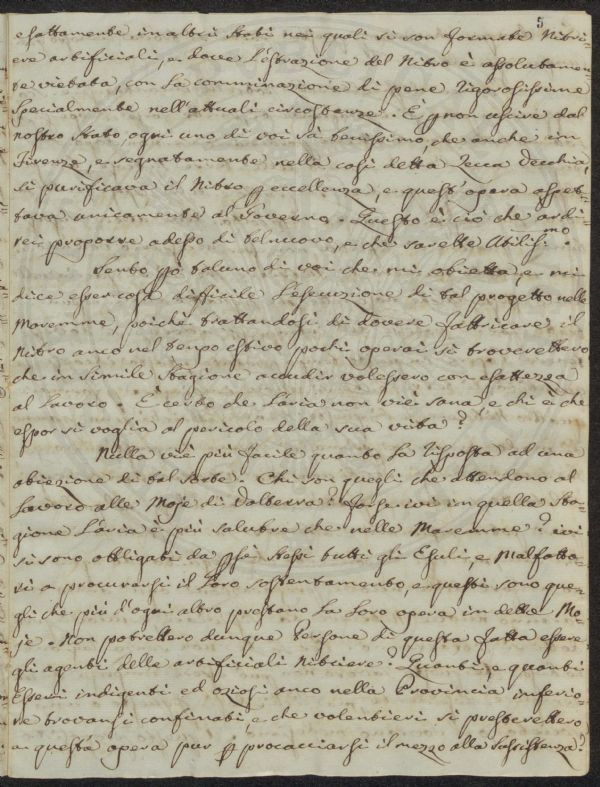 5
esattamente in altri Stati nei quali si son formate Nitri-
ere artificiali, e dove l'estrazione del Nitro è assolutamen-
te vietata, con la comminazione di pene rigorosissime
specialmente nell'attuali circostanze. È p non uscire dal
nostro Stato, ogni uno di voi sà benissimo, che anche in
Firenze, e segnatamente nella così detta Zecca Vecchia,
si purificava il Nitro p eccellenza, e quest'opera aspet-
tava unicamente al Governo. Questo è ciò che ardi-
rei proporre adesso di bel nuovo, e che sarebbe Utiliss.mo.
Sento pò taluno di voi che mi obietta, e mi
dice esser cosa difficile l'esecuzione di tal progetto nelle
Maremme, poichè trattandosi di dovere fabbricare il
Nitro anco nel tempo estivo pochi operai si troverebbero
che in simile stagione accudir volessero con esattezza
al lavoro. È certo che l'aria non vi è sana, e chi è che
espor si voglia al pericolo della sua vita?
Nulla vi è più facile quanto la risposta ad una
obiezione di tal sorte. Chi son quegli che attendono al
lavoro alle Moje di Volterra? Forse ivi in quella sta-
gione l'aria è più salubre che nelle Maremme? ivi
si sono obbligati da p se stessi tutti gli Esuli, e Malfatto-
ri a procurarsi il loro sostentamento, e questi sono que-
gli che più d'ogni altro prestano la loro opera in dette Mo-
je. Non potrebbero dunque Persone di questa fatta essere
gli agenti delle artificiali Nitriere? Quanti, e quanti
Esseri indigenti ed oziosi anco nella Provincia inferio-
re trovansi confinati, e che volentieri si presterebbero
a quest'opera pur p procacciarsi il mezzo alla sussistenza?